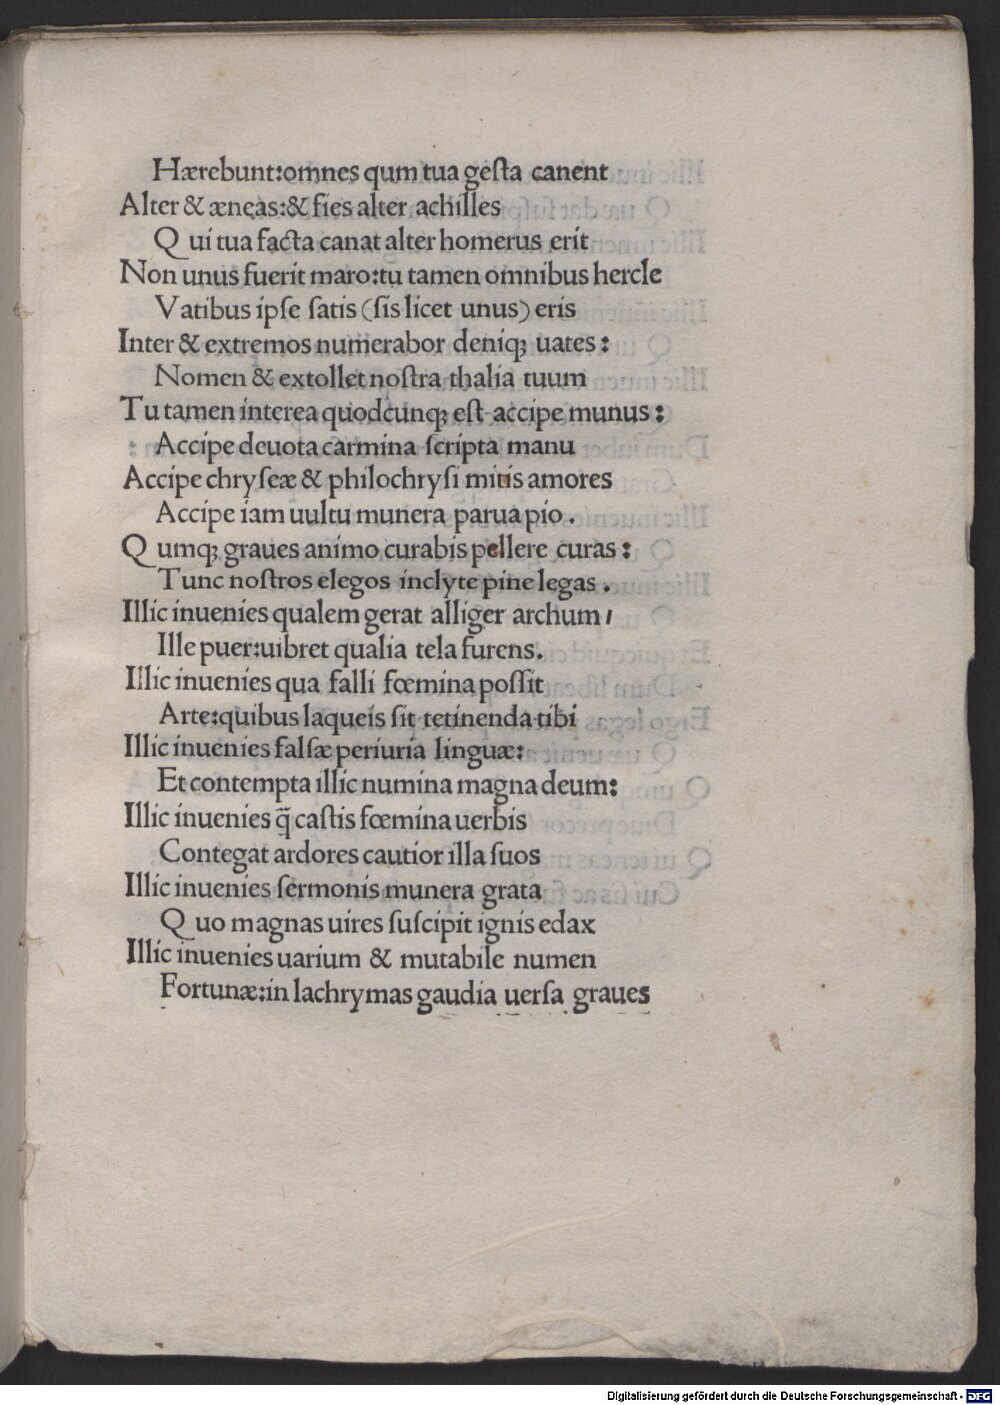 Hærebunt:omnes qum tua geſta canent
Alter & æneas:& fies alter achilles
Q ui tua facta canat alter homerus erit
Non unus fuerit maro:tu tamen omnibus hercle
Vatibus ipſe ſatis (ſis licet unus) eris
Inter & extremos numerabor deniqꝫ uates:
Nomen & extollet noſtra thalia tuum
Tu tamen interea quodcunqꝫ eſt accipe munus:
Accipe deuota carmina ſcripta manu
Accipe chryſeæ & philochryſi mitis amores
Accipe iam uultu munera parua pio.
Q umqꝫ graues animo curabis pellere curas:
Tunc noſtros elegos inclyte pine legas.
Illic inuenies qualem gerat alliger archum/
Ille puer:uibret qualia tela furens.
Illic inuenies qua falli fœmina poſſit
Arte:quibus laqueis ſit tetinenda tibi
Illic inuenies falſæ periuria linguæ:
Et contempta illic numina magna deum:
Illic inuenies q̃ caſtis fœmina uerbis
Contegat ardores cautior illa ſuos
Illic inuenies ſermonis munera grata
Q uo magnas uires ſuſcipit ignis edax
Illic inuenies uarium & mutabile numen
Fortunæ:in lachrymas gaudia uerſa graues
Digitalisierung gefördert durch die Deutsche Forschungsgemeinschaft - DFG